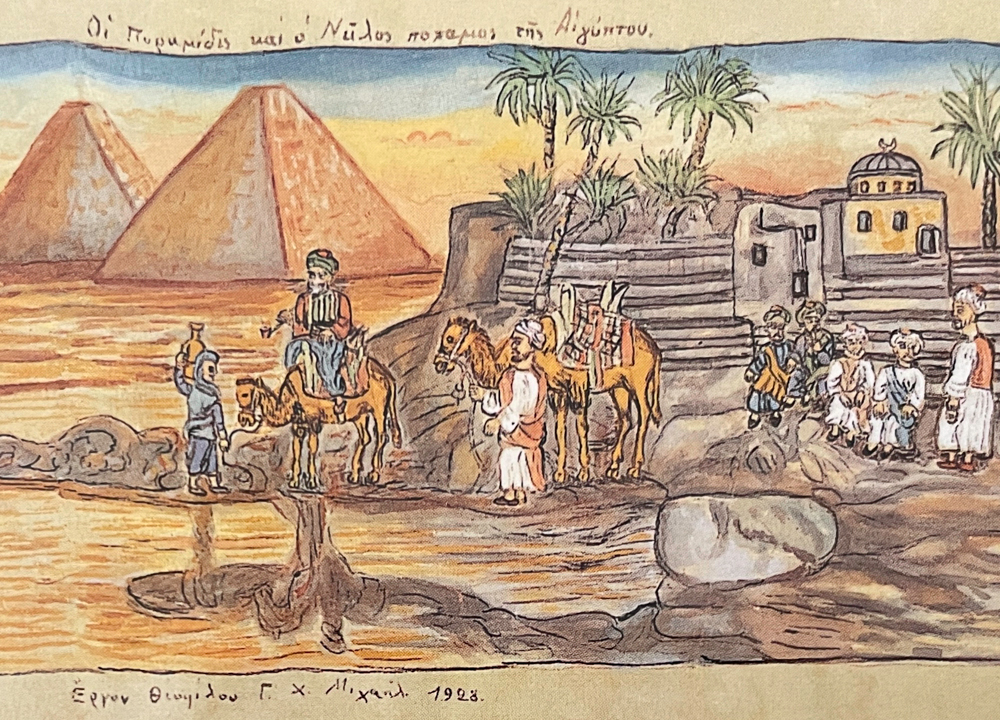 Οἱ Πυραμίδες καί ὁ Νεῖλος ποταμος τῆς Αἰγύπτου.
Ἔργον Θεοφίλου Γ. Χ. Μιχαήλ. 1928.